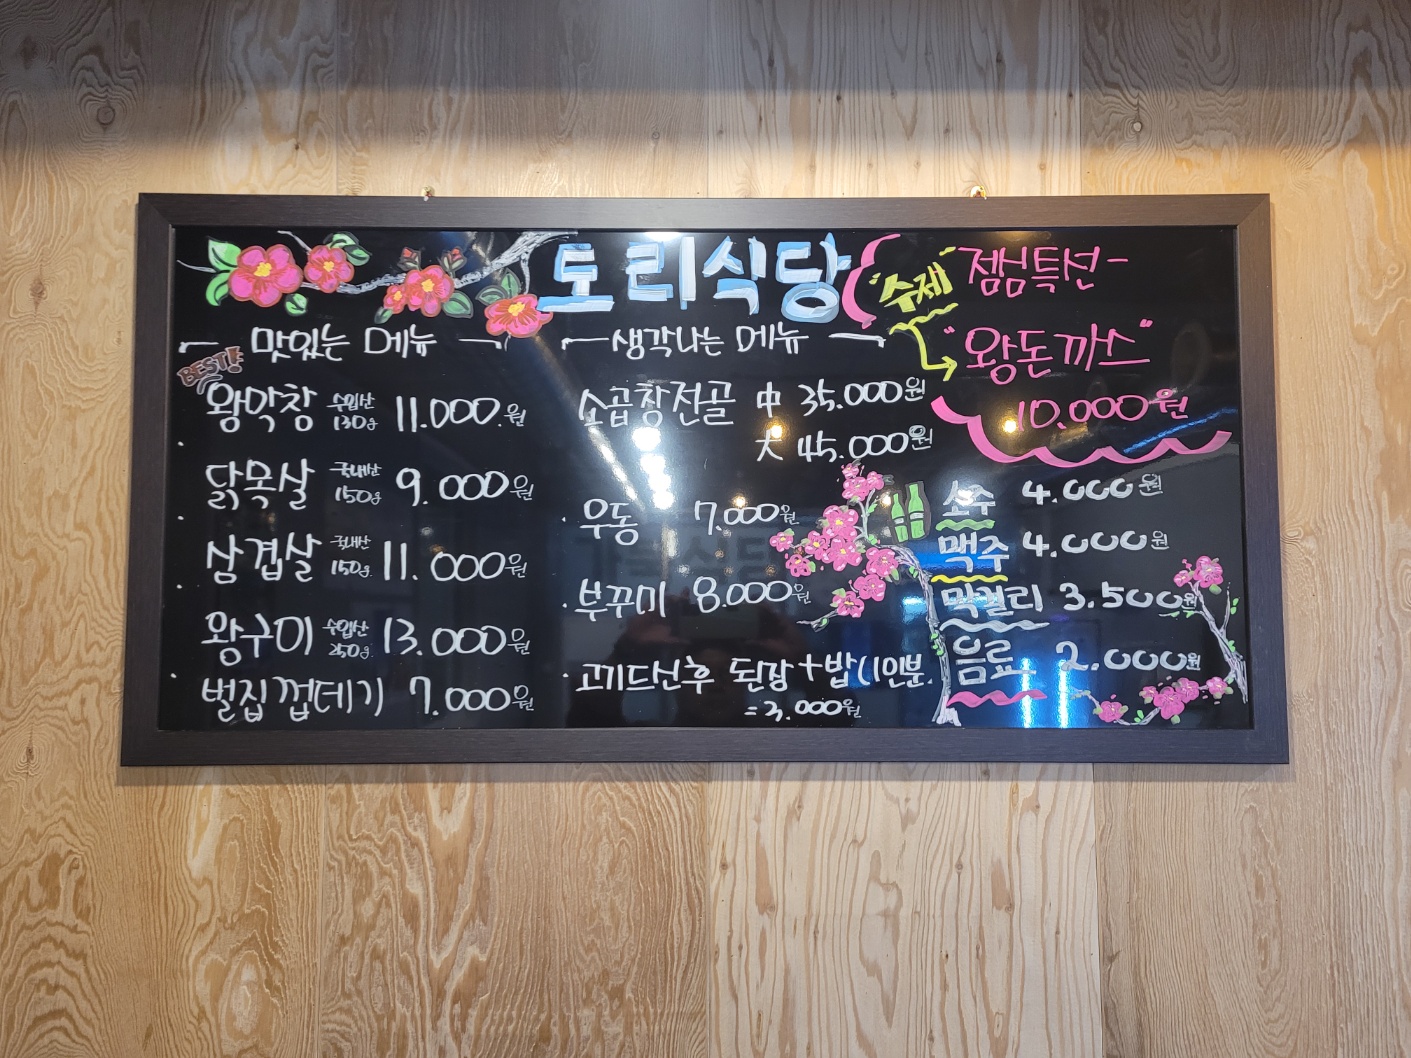 토리식당
맛있는 메뉴
BEST!
왕막창 수입산 130g 11.000.원
닭목살 국내산 150g 9.000원
삼겹살 국내산 150g 11.000원
왕구이 수입산 250g 13.000원
벌집껍데기 7.000원
생각나는 메뉴
소곱창전골 中 35.000원
大 45.000원
우동 7.000원
부꾸미 8.000원
고기드신후 된장+밥(1인분.
=3.000원
"수제" 점심특선-
"왕돈까스"
10.000원
소주 4.000원
맥주 4.000원
막걸리 3.500원
음료 2.000원